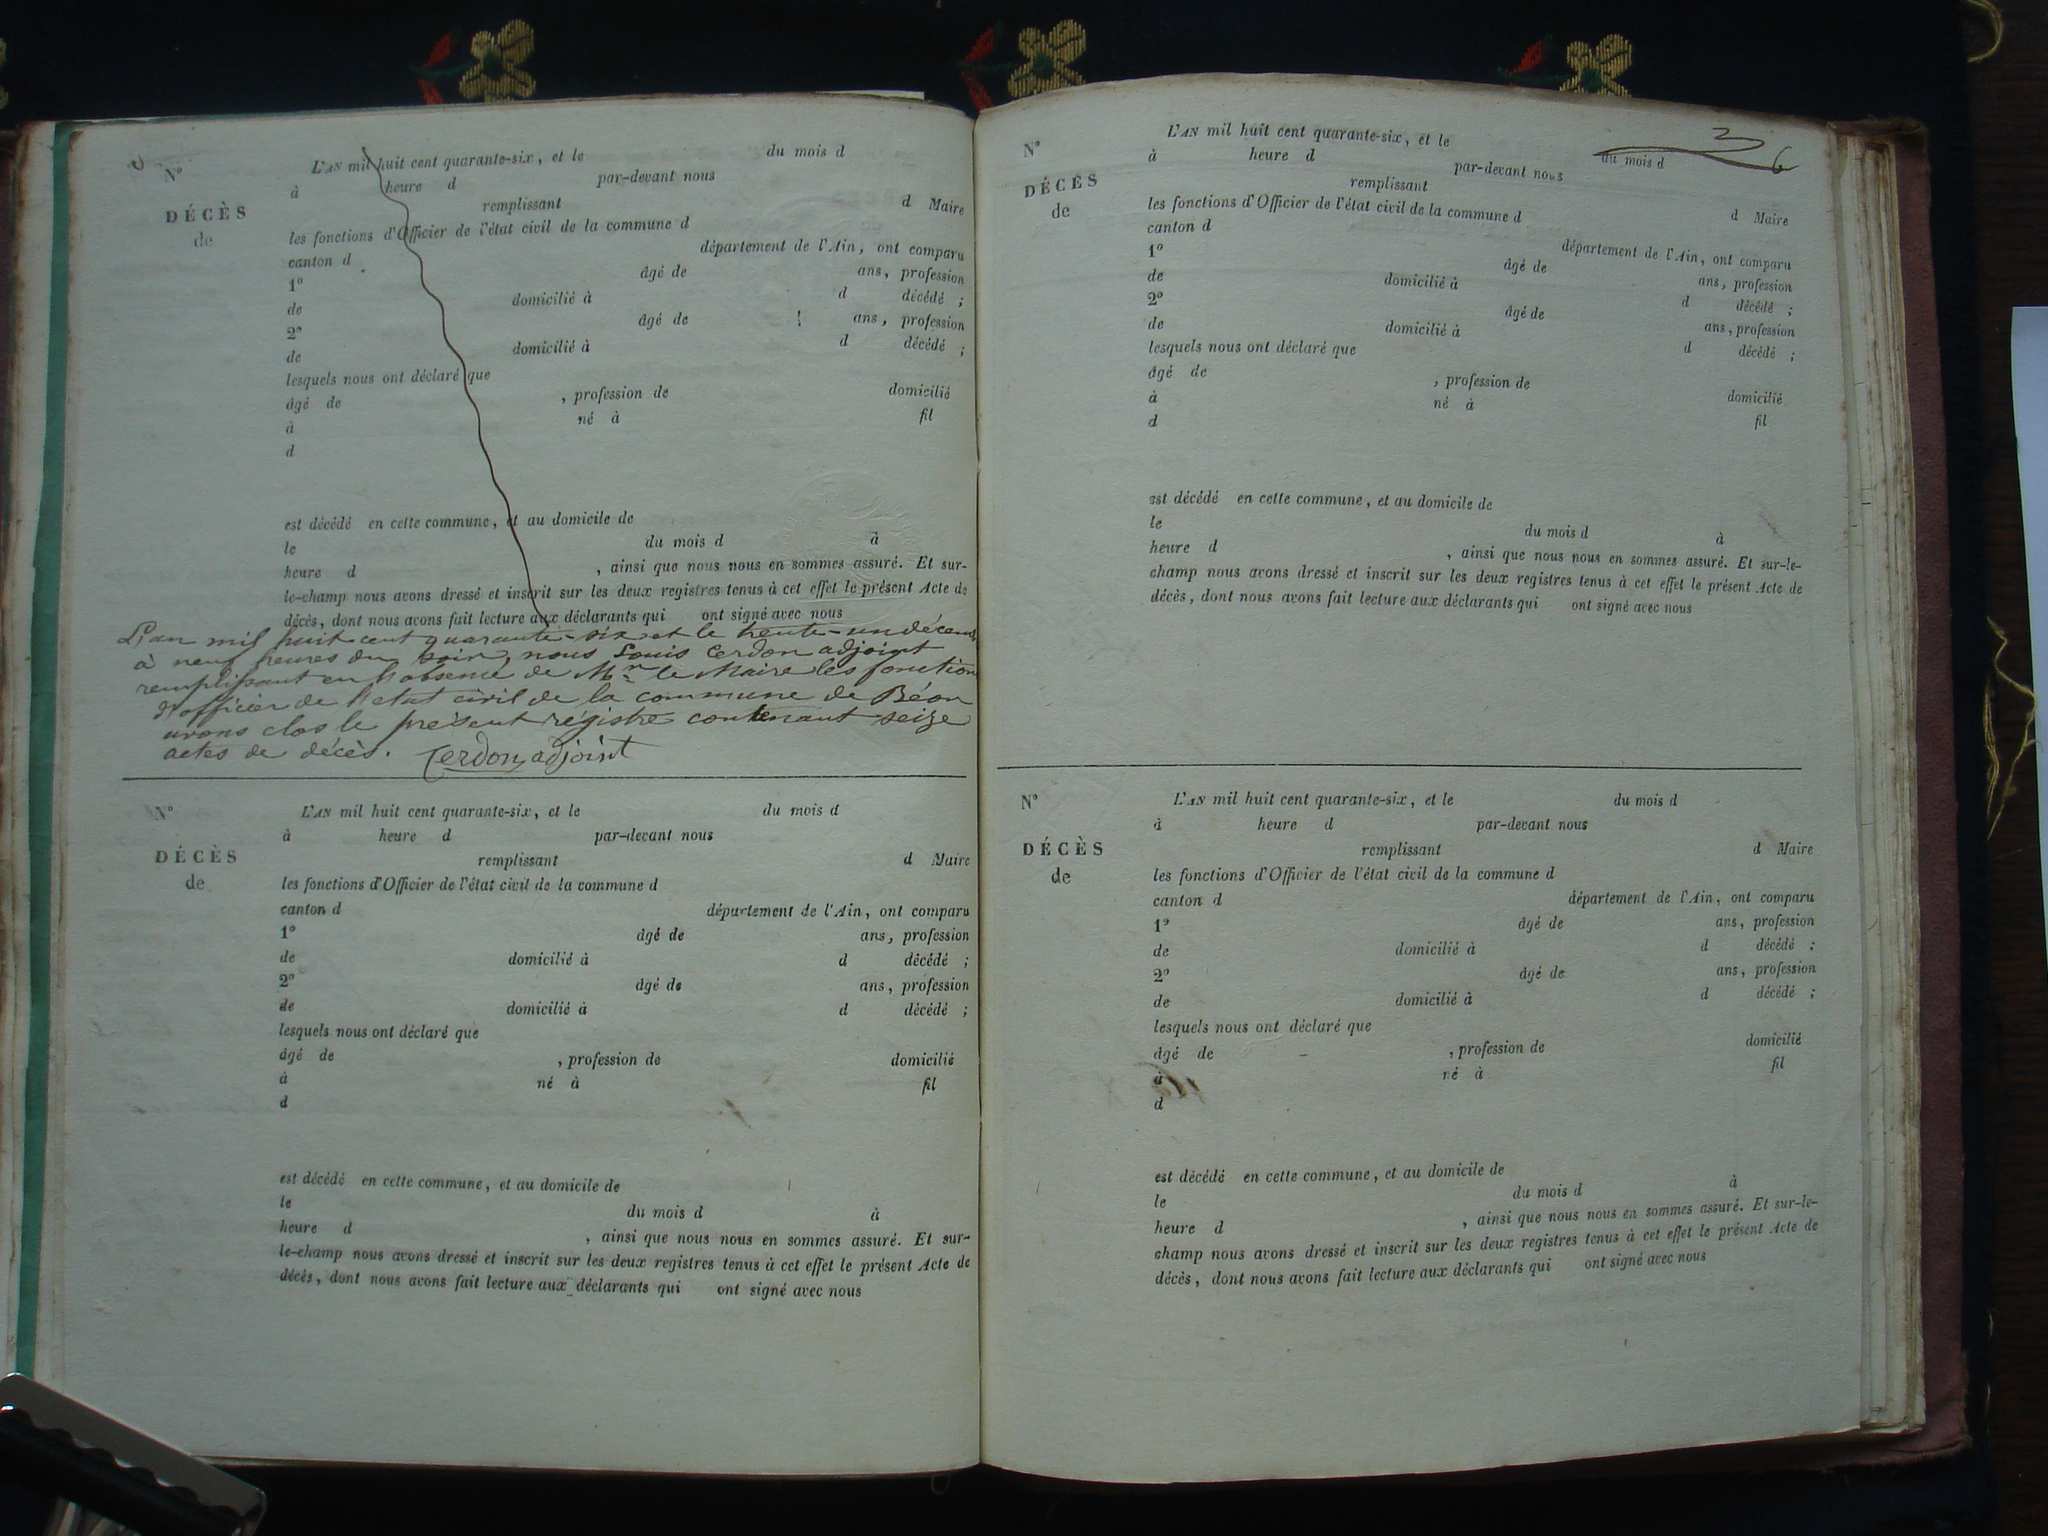 N°
L'AN mil huit cent quarante-six, et le du mois d
à heure d par-devant nous
DÉCÈS
remplissant d Maire
de
les fonctions d'Officier de l'état civil de la commune d
canton d département de l'Ain, ont comparu
1° âgé de ans, profession
de domicilié à d décédé ;
2° âgé de ans, profession
de domicilié à d décédé ;
lesquels nous ont déclaré que
âgé de , profession de domicilié
à né à fil
d
est décédé en cette commune, et au domicile de
le du mois d à
heure d , ainsi que nous nous en sommes assuré. Et sur-
le-champ nous avons dressé et inscrit sur les deux registres tenus à cet effet le présent Acte de
décès, dont nous avons fait lecture aux déclarants qui ont signé avec nous
L'an mil huit cent quarante-six et le trente-un décemb
à neuf heures du soir, nous Louis Cerdon adjoint
remplissant en l'absence de Mr le Maire les fonction
d'officier de l'etat civil de la commune de Béon
avons clos le présent régistre contenant seize
actes de décès. Cerdon, adjoint
N°
L'AN mil huit cent quarante-six, et le du mois d
à heure d par-devant nous
DÉCÈS
remplissant d Maire
de
les fonctions d'Officier de l'état civil de la commune d
canton d département de l'Ain, ont comparu
1° âgé de ans, profession
de domicilié à d décédé ;
2° âgé de ans, profession
de domicilié à d décédé ;
lesquels nous ont déclaré que
âgé de , profession de domicilié
à né à fil
d
est décédé en cette commune, et au domicile de
le du mois d à
heure d , ainsi que nous nous en sommes assuré. Et sur-
le-champ nous avons dressé et inscrit sur les deux registres tenus à cet effet le présent Acte de
décès, dont nous avons fait lecture aux déclarants qui ont signé avec nous
3
6
N°
L'AN mil huit cent quarante-six, et le du mois d
à heure d par-devant nous
DÉCÈS
remplissant d Maire
de
les fonctions d'Officier de l'état civil de la commune d
canton d département de l'Ain, ont comparu
1° âgé de ans, profession
de domicilié à d décédé ;
2° âgé de ans, profession
de domicilié à d décédé ;
lesquels nous ont déclaré que
âgé de , profession de domicilié
à né à fil
d
est décédé en cette commune, et au domicile de
le du mois d à
heure d , ainsi que nous nous en sommes assuré. Et sur-le-
champ nous avons dressé et inscrit sur les deux registres tenus à cet effet le présent Acte de
décès, dont nous avons fait lecture aux déclarants qui ont signé avec nous
N°
L'AN mil huit cent quarante-six, et le du mois d
à heure d par-devant nous
DÉCÈS
remplissant d Maire
de
les fonctions d'Officier de l'état civil de la commune d
canton d département de l'Ain, ont comparu
1° âgé de ans, profession
de domicilié à d décédé ;
2° âgé de ans, profession
de domicilié à d décédé ;
lesquels nous ont déclaré que
âgé de , profession de domicilié
à né à fil
d
est décédé en cette commune, et au domicile de
le du mois d à
heure d , ainsi que nous nous en sommes assuré. Et sur-le-
champ nous avons dressé et inscrit sur les deux registres tenus à cet effet le présent Acte de
décès, dont nous avons fait lecture aux déclarants qui ont signé avec nous